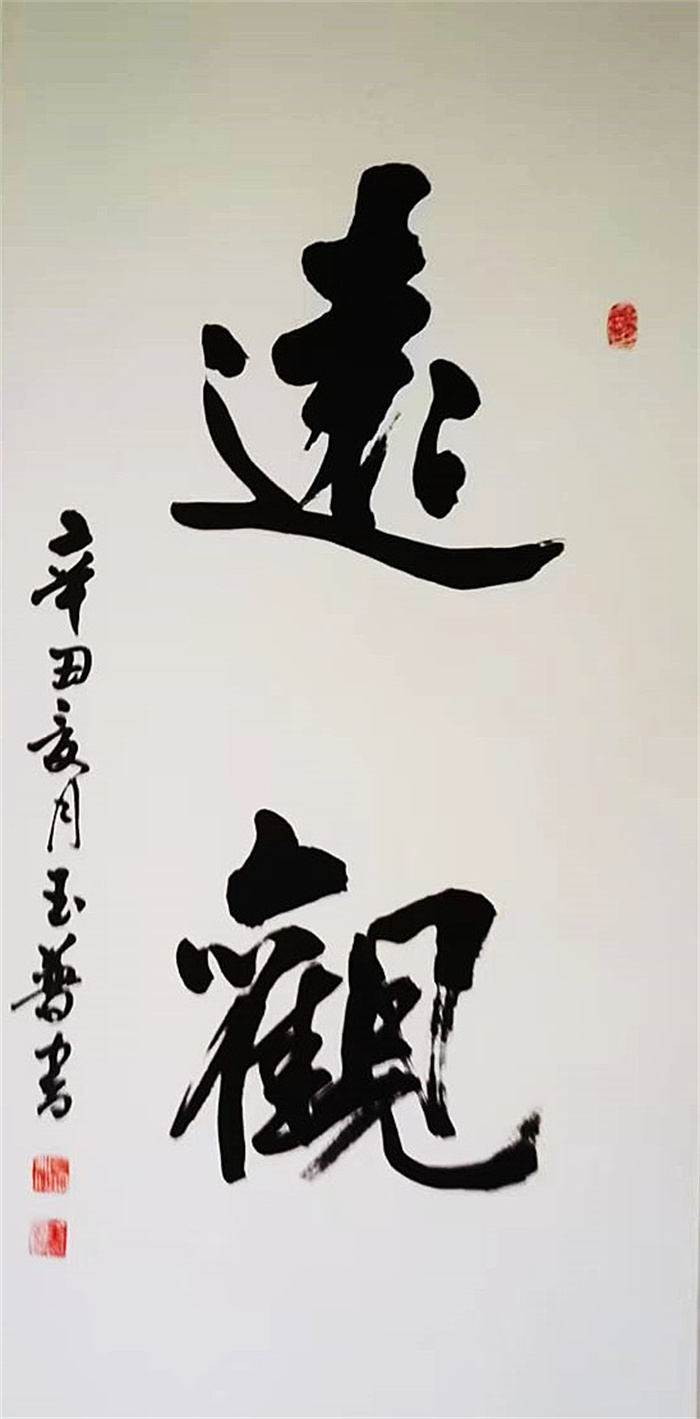 遠觀
辛丑亥月玉普書